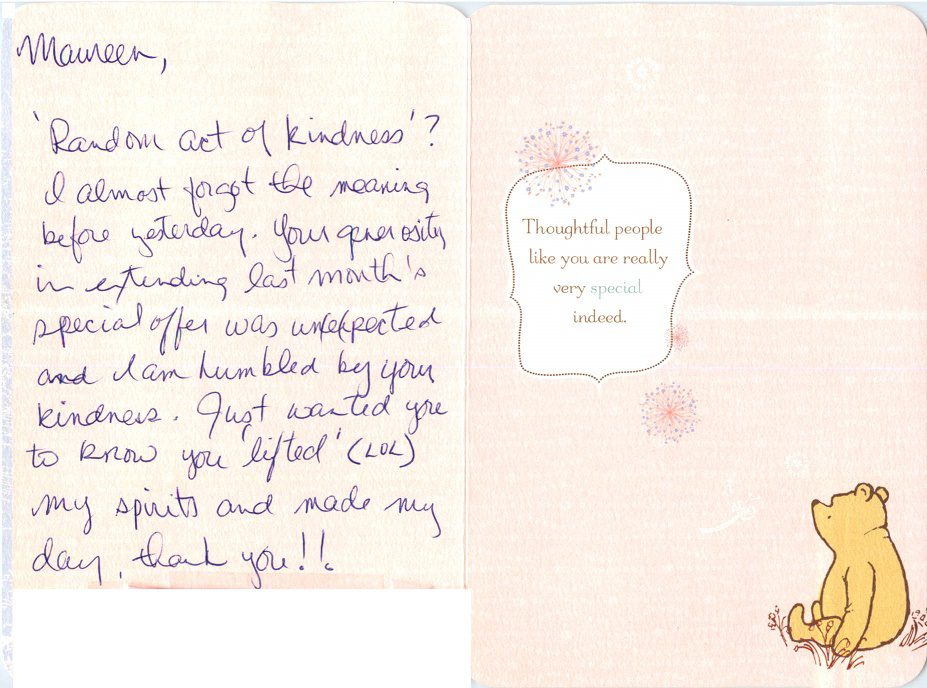 Maureen,
'Random act of kindness'?
I almost forgot the meaning
before yesterday. Your generosity
in extending last month's
special offer was unexpected
and I am humbled by your
kindness. Just wanted you
to know you 'lifted' (LOL)
my spirits and made my
day, thank you!!
Thoughtful people
like you are really
very special
indeed.